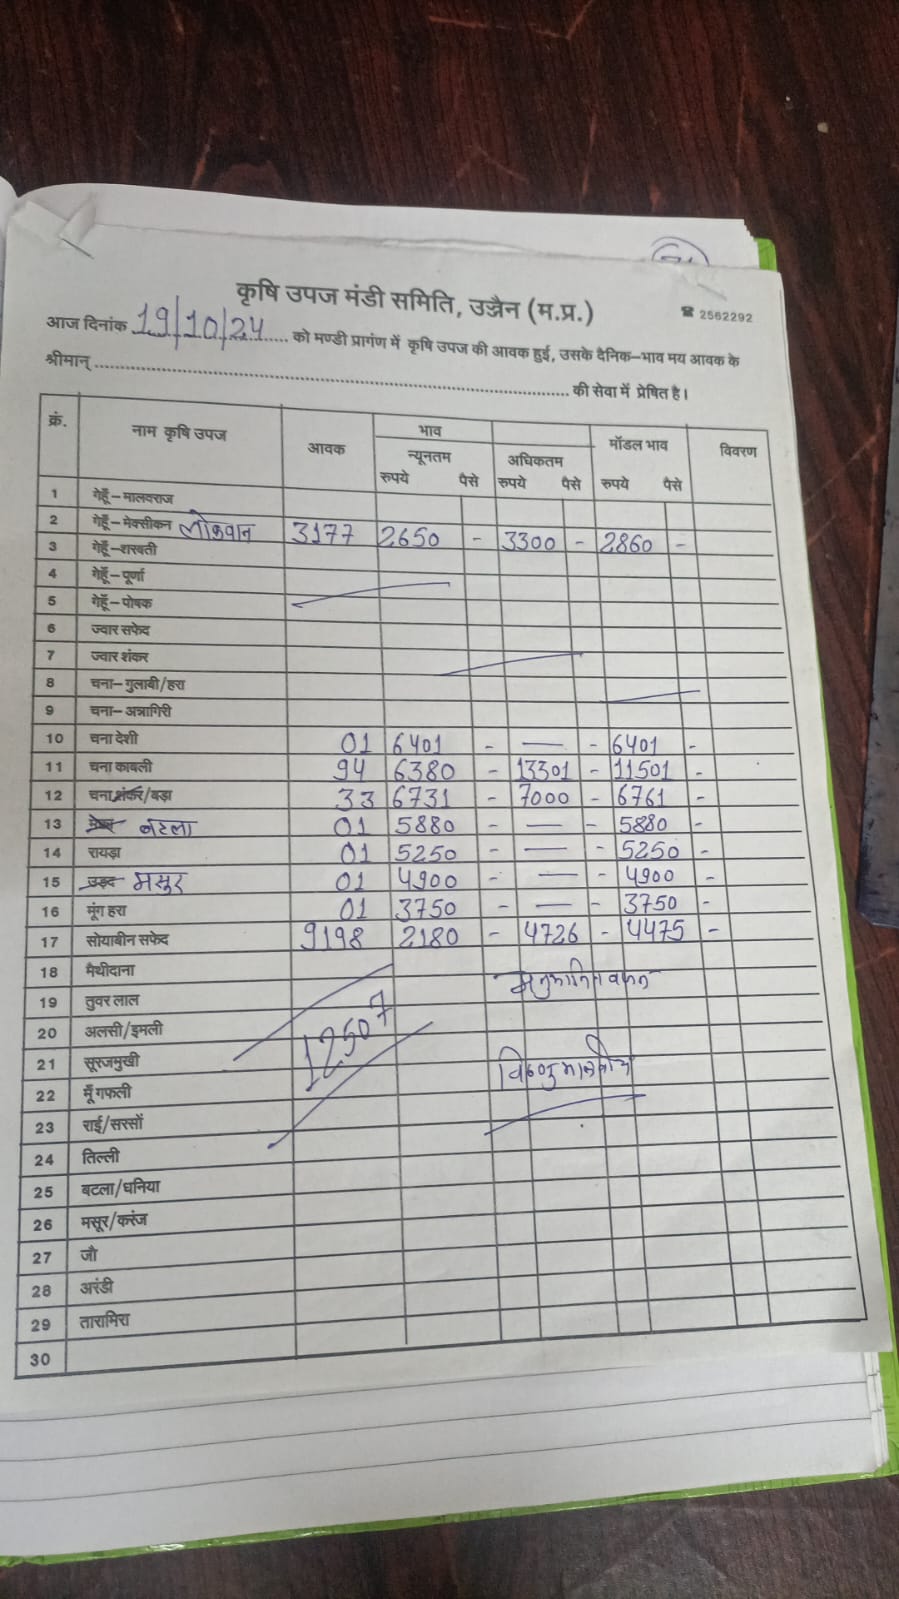 कृषि उपज मंडी समिति, उज्जैन (म.प्र.)
☎ 2562292
आज दिनांक 19/10/24 को मण्डी प्रागंण में कृषि उपज की आवक हुई, उसके दैनिक–भाव मय आवक के
श्रीमान् की सेवा में प्रेषित है।
क्रं. नाम कृषि उपज आवक भाव मॉडल भाव विवरण
न्यूनतम अधिकतम
रुपये पैसे रुपये पैसे रुपये पैसे
1 गेहूँ–मालवराज
2 गेहूँ–मेक्सीकन लोकवान 3177 2650 - 3300 - 2860 -
3 गेहूँ–शरबती
4 गेहूँ–पूर्णा
5 गेहूँ–पोषक
6 ज्वार सफेद
7 ज्वार शंकर
8 चना–गुलाबी/हरा
9 चना–अन्नागिरी
10 चना देशी 01 6401 - — - 6401 -
11 चना काबली 94 6380 - 13301 - 11501 -
12 चना शंकर/बड़ा 33 6731 - 7000 - 6761 -
13 बटला 01 5880 - — - 5880 -
14 रायड़ा 01 5250 - — - 5250 -
15 उड़द मसूर 01 4900 - — - 4900 -
16 मूंग हरा 01 3750 - — - 3750 -
17 सोयाबीन सफेद 9198 2180 - 4726 - 4475 -
18 मैथीदाना
19 तुवर लाल
20 अलसी/इमली
12507
21 सूरजमुखी
22 मूँगफली
23 राई/सरसों
24 तिल्ली
25 बटला/धनिया
26 मसूर/करंज
27 जौ
28 अरंडी
29 तारामिरा
30